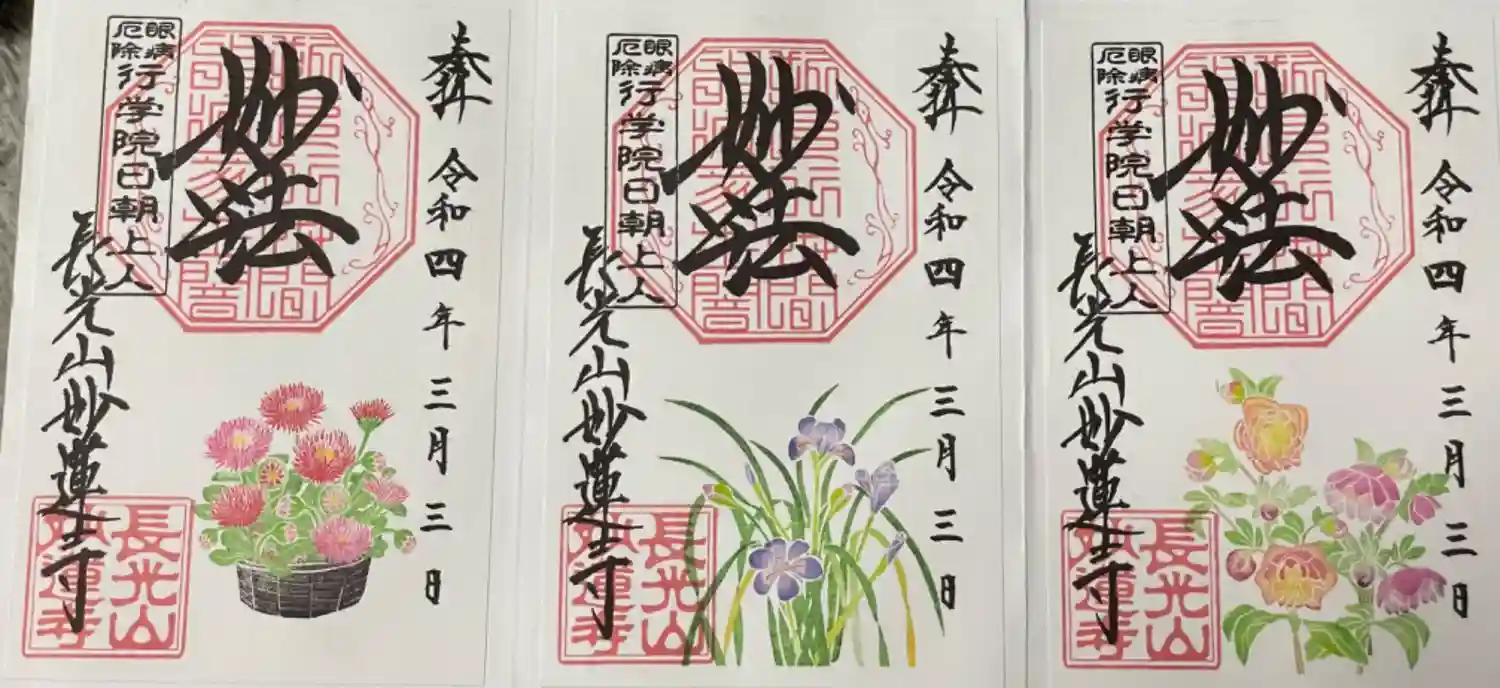 奉拝 令和四年三月三日
妙法
眼病
厄除
行学院日朝上人
長光山妙蓮寺
長光山
妙蓮寺
奉拝 令和四年三月三日
妙法
眼病
厄除
行学院日朝上人
長光山妙蓮寺
長光山
妙蓮寺
奉拝 令和四年三月三日
妙法
眼病
厄除
行学院日朝上人
長光山妙蓮寺
長光山
妙蓮寺